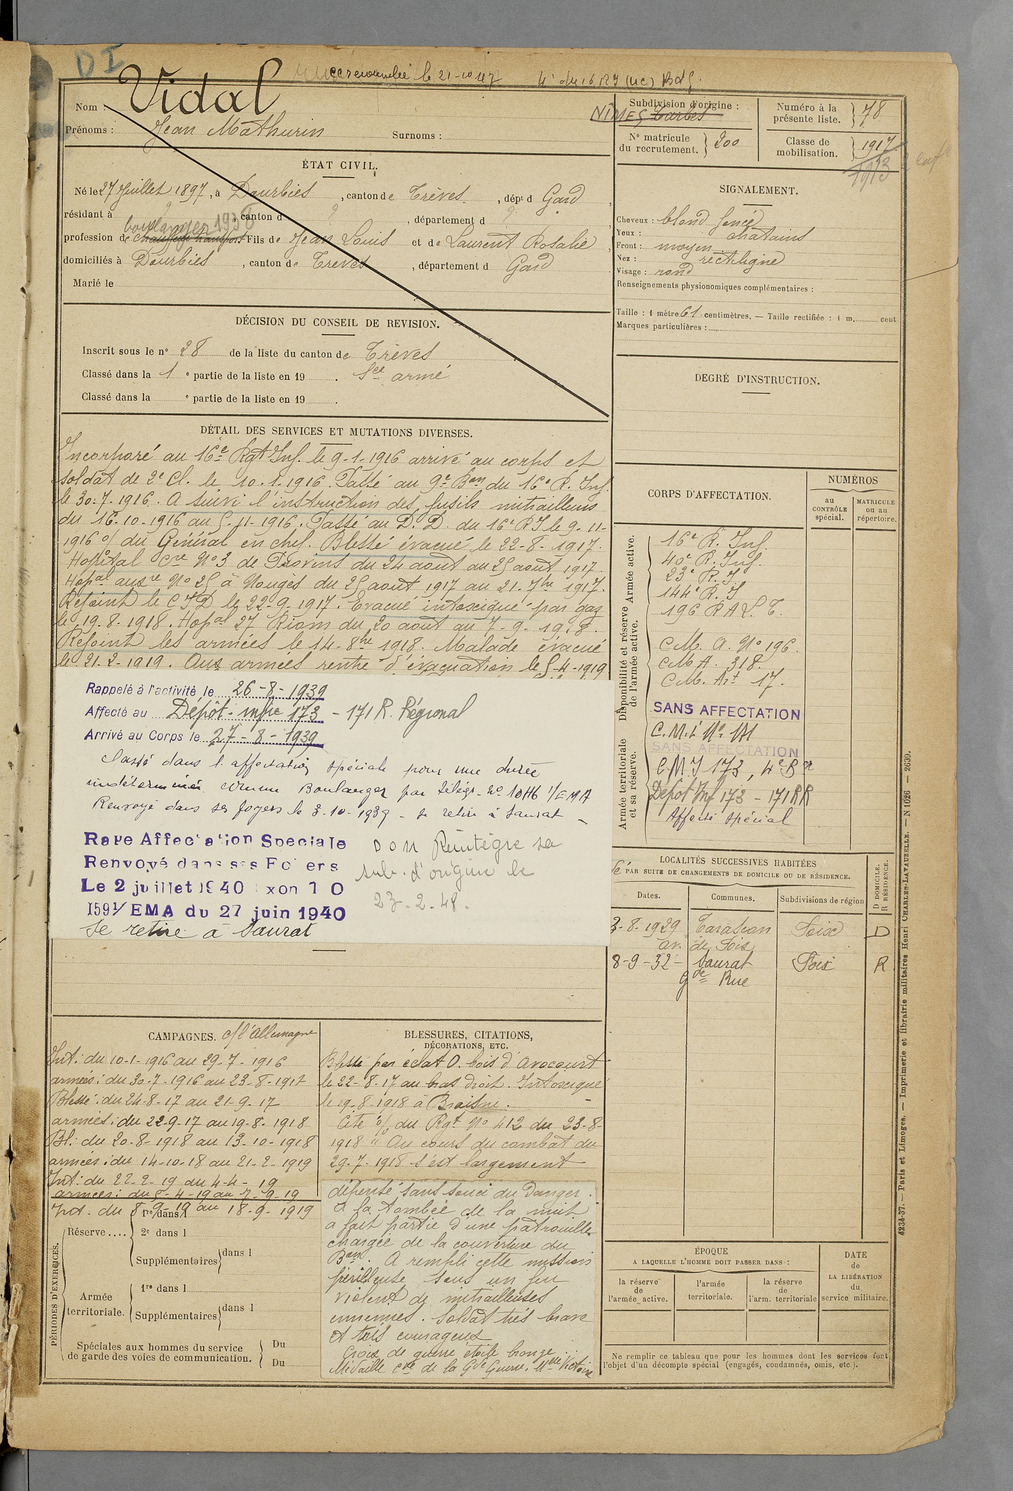 DI
recensement le 21-10-47
Vidal
Nom :
Prénoms : Jean Mathurin Surnoms :
ÉTAT CIVIL.
Né le 27 Juillet 1897, à Dourbies, canton de Trèves, dépt d Gard
résidant à , canton d , département d
boulanger 1936
profession de Fils de Jean Louis et de Laurent Rosalie
domiciliés à Dourbies, canton de Treves, département d Gard
Marié le
DÉCISION DU CONSEIL DE REVISION.
Inscrit sous le n° 28 de la liste du canton de Trèves
Classé dans la 1e partie de la liste en 19 . Sce armé
Classé dans la e partie de la liste en 19 .
NÎMES Tarbes
Subdivision d'origine :
N° matricule du recrutement. 200
Numéro à la présente liste. 78
Classe de mobilisation. 1917
1913
SIGNALEMENT.
Cheveux : blond foncé
Yeux : chatains
Front : moyen
Nez : rectiligne
Visage : rond
Renseignements physionomiques complémentaires :
Taille : 1 mètre 61 centimètres. — Taille rectifiée : 1 m. cent
Marques particulières :
DEGRÉ D'INSTRUCTION.
DÉTAIL DES SERVICES ET MUTATIONS DIVERSES.
Incorporé au 16e Rgt Inf. le 9-1-1916 arrivé au corps et
soldat de 2e Cl. le 10.1.1916. Passé au 9e Bon du 16e R. Inf.
le 30-7-1916. A suivi l'instruction des fusils mitrailleurs
du 16.10-1916 au 5-11-1916. Passé au D. D. du 16e R I le 9-11-
1916 o/ du Général en chef. Blessé évacué le 22-8-1917.
Hopital Cre N° 3 de Provins du 24 aout au 25 aout 1917.
Hopal auxre N° 25 à Nougès du 25 aout 1917 au 21-7bre 1917.
Rejoint le C I D le 22-9-1917. Evacué intoxiqué par gaz
le 19-8-1918. Hopal 27 Riom du 20 aout au 7-9-1918.
Rejoint les armées le 14-8bre 1918. Malade évacué
le 21-2-1919. Aux armées rentré d'évacuation le 5-4-1919
Rappelé à l'activité le 26-8-1939
Affecté au Dépôt-infie 173 - 171 R. Régional
Arrivé au Corps le 27-8-1939
Passé dans l'affectation spéciale pour une durée
indéterminée comme Boulanger par télégr. N° 10116 1/EMA
Renvoyé dans ses foyers le 3-10-1939 - se retire à Saurat -
Raye Affectation Speciale
Renvoyé dans ses Foyers
Le 2 juillet 1940
1591/EMA du 27 juin 1940
se retire à Saurat
DOM Réintègre sa
sub. d'origine le
23-2-48.
CORPS D'AFFECTATION.
NUMÉROS
au CONTRÔLE spécial.
MATRICULE ou au répertoire.
Disponibilité et réserve de l'armée active. Armée active.
Armée territoriale et sa réserve.
16e R. Inf.
40e R. Inf.
23e R. I.
144e R. I
196 R A L T.
C.M. A. N° 196.
C M A. 318.
C M. Art 17.
SANS AFFECTATION
C. M. I N° 171
SANS AFFECTATION
C M I 173, 4e Bon
Dépôt Inf 173 - 171 RR
Affecté spécial
LOCALITÉS SUCCESSIVES HABITÉES
PAR SUITE DE CHANGEMENTS DE DOMICILE OU DE RÉSIDENCE.
Dates. Communes. Subdivisions de région
D DOMICILE. R RÉSIDENCE.
3-8-1929 Tarascon Foix D
av. de Foix
8-9-32 - Saurat Foix R
Gde Rue
CAMPAGNES. c/ l'Allemagne
Int: du 10-1-1916 au 29-7-1916
armées: du 30-7-1916 au 23-8-1917
Blessé: du 24-8-17 au 21-9-17
armées: du 22-9-17 au 19-8-1918
Bl: du 20-8-1918 au 13-10-1918
armées: du 14-10-18 au 21-2-1919
Int: du 22-2-19 au 4-4-19
armées: du 5-4-19 au 7-9-19
Int. du 8-9-19 au 18-9-1919
PÉRIODES D'EXERCICES.
Réserve.... 1re dans l
2e dans l
Supplémentaires dans l
Armée territoriale. 1re dans l
Supplémentaires dans l
Spéciales aux hommes du service de garde des voies de communication. Du
Du
BLESSURES, CITATIONS,
DÉCORATIONS, ETC.
Blessé par éclat O. bois d'Avocourt
le 22-8-17 au bras droit. Intoxiqué
le 19-8-1918 à Braisne.
Cité o/ du Rgt N° 412 du 23-8-
1918 "Au cours du combat du
29-7-1918 s'est largement
dépensé sans souci du danger.
A la tombée de la nuit
a fait partie d'une patrouille
chargée de la couverture du
Bon. A rempli cette mission
périlleuse sous un feu
violent de mitrailleuses
ennemies. Soldat très brave
et très courageux
Croix de guerre étoile bronze
Médaille cve de la Gde Guerre. Mlle Victoire
ÉPOQUE
A LAQUELLE L'HOMME DOIT PASSER DANS :
la réserve de l'armée active. l'armée territoriale. la réserve de l'arm. territoriale
DATE de LA LIBÉRATION du service militaire.
Ne remplir ce tableau que pour les hommes dont les services font
l'objet d'un décompte spécial (engagés, condamnés, omis, etc.).
4234-37. — Paris et Limoges. — Imprimerie et librairie militaires Henri CHARLES-LAVAUZELLE. — N. 1026 I — 2639.